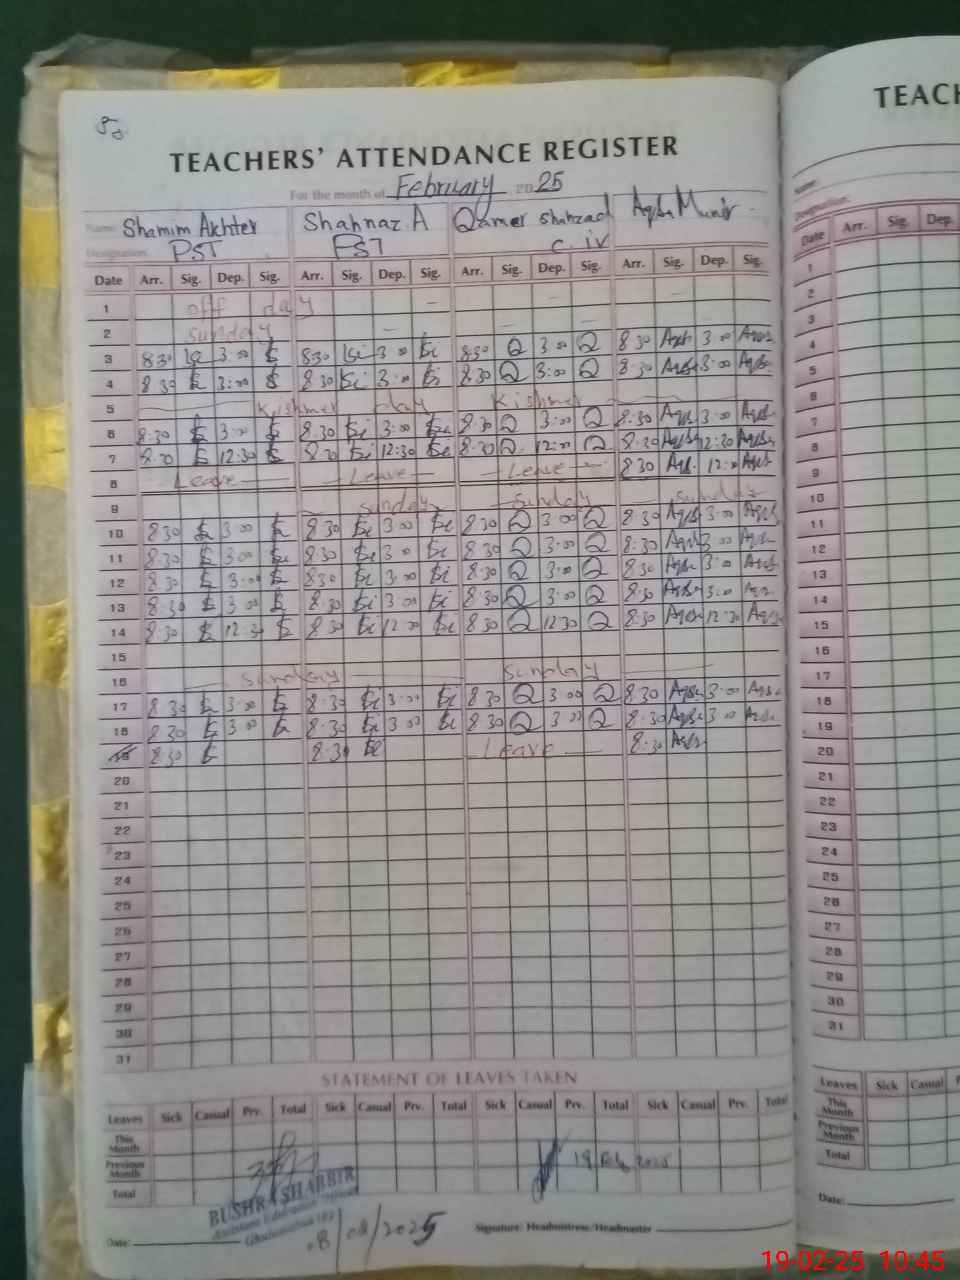 TEACHERS' ATTENDANCE REGISTER
For the month of February 2025
Name: Shamim Akhter Shahnaz A Qamer Shahzad Aqsa Munir
Designation: PST PST C.iv
Date Arr. Sig. Dep. Sig. Arr. Sig. Dep. Sig. Arr. Sig. Dep. Sig. Arr. Sig. Dep. Sig.
1 off day
2 sunday
3 830 3:00 830 3:00 8:30 Q 3:00 Q 8:30 Aqsa 3:00 Aqsa
4 8:30 3:00 8:30 3:00 8:30 Q 3:00 Q 8:30 Aqsa 3:00 Aqsa
5 Kishmer day Kishmer
6 8:30 3:00 8:30 3:00 8:30 Q 3:00 Q 8:30 Aqsa 3:00 Aqsa
7 8:30 12:30 8:30 12:30 8:30 Q 12:30 Q 8:30 Aqsa 12:30 Aqsa
8 Leave Leave Leave 8:30 Aqsa Aqsa
9 sunday sunday sunday
10 8:30 3:00 8:30 3:00 8:30 Q 3:00 Q 8:30 Aqsa 3:00 Aqsa
11 8:30 3:00 8:30 3:00 8:30 Q 3:00 Q 8:30 Aqsa 3:00 Aqsa
12 8:30 3:00 8:30 3:00 8:30 Q 3:00 Q 8:30 Aqsa 3:00 Aqsa
13 8:30 3:00 8:30 3:00 8:30 Q 3:00 Q 8:30 Aqsa 3:00 Aqsa
14 8:30 12:30 8:30 12:30 8:30 Q 12:30 Q 8:30 Aqsa 12:30 Aqsa
15
16 sunday sunday
17 8:30 3:00 8:30 3:00 8:30 Q 3:00 Q 8:30 Aqsa 3:00 Aqsa
18 8:30 3:00 8:30 3:00 8:30 Q 3:00 Q 8:30 Aqsa 3:00 Aqsa
8:30 8:30 Leave 8:30 Aqsa
20
21
22
23
24
25
26
27
28
29
30
31
STATEMENT OF LEAVES TAKEN
Leaves Sick Casual Prv. Total Sick Casual Prv. Total Sick Casual Prv. Total Sick Casual Prv. Total
This Month
Previous Month 19 Feb 2025
Total
BUSHRA SHARBIR
Assistant Education Officer
Date: 08/02/2025 Signature: Headmistress/Headmaster
TEACH
Name:
Designation:
Date Arr. Sig. Dep.
1
2
3
4
5
6
7
8
9
10
11
12
13
14
15
16
17
18
19
20
21
22
23
24
25
26
27
28
29
30
31
Leaves Sick Casual
This Month
Previous Month
Total
Date:
19-02-25 10:45